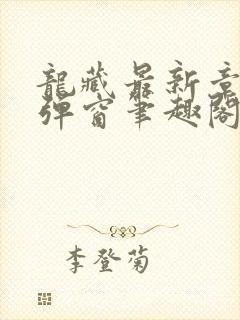 龍藏最新章
彈窗筆趣閣
李登菊